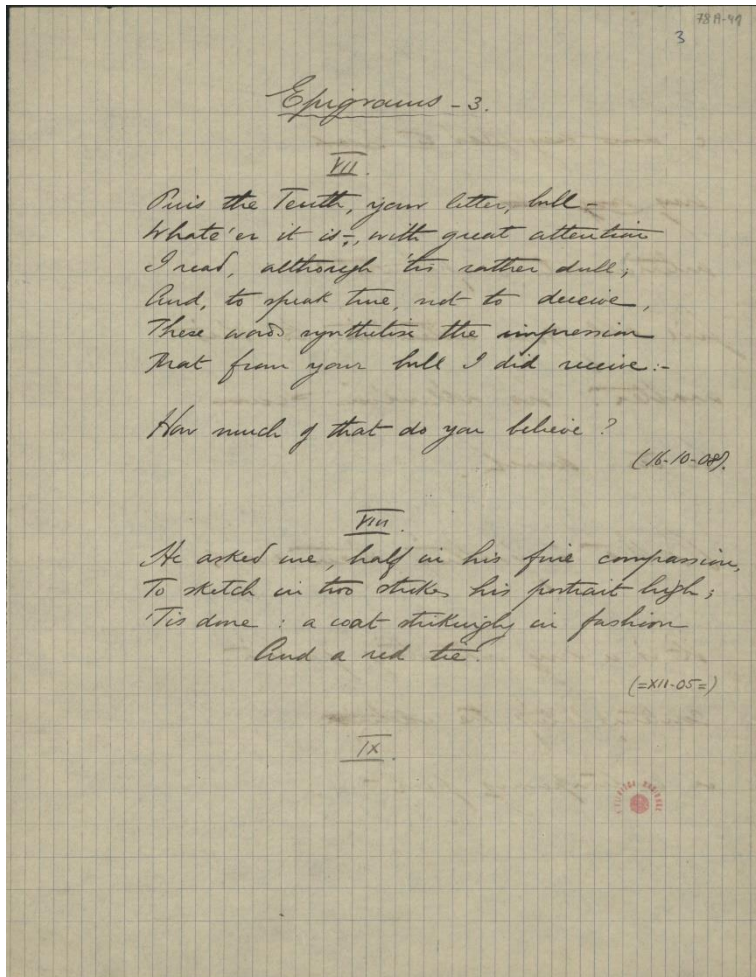 78A-49
3
Epigrams - 3.
VII.
Pius the Tenth, your letter, bull –
Whate'er it is –, with great attention
I read, although 'tis rather dull;
And, to speak true, not to deceive,
These words synthetise the impression
That from your bull I did receive:–
How much of that do you believe?
(16-10-08).
VIII.
He asked me, half in his fine compassion,
To sketch in two strokes his portrait high;
'Tis done: a coat strikingly in fashion
And a red tie.
(=XII-05=)
IX
BIBLIOTECA NACIONAL